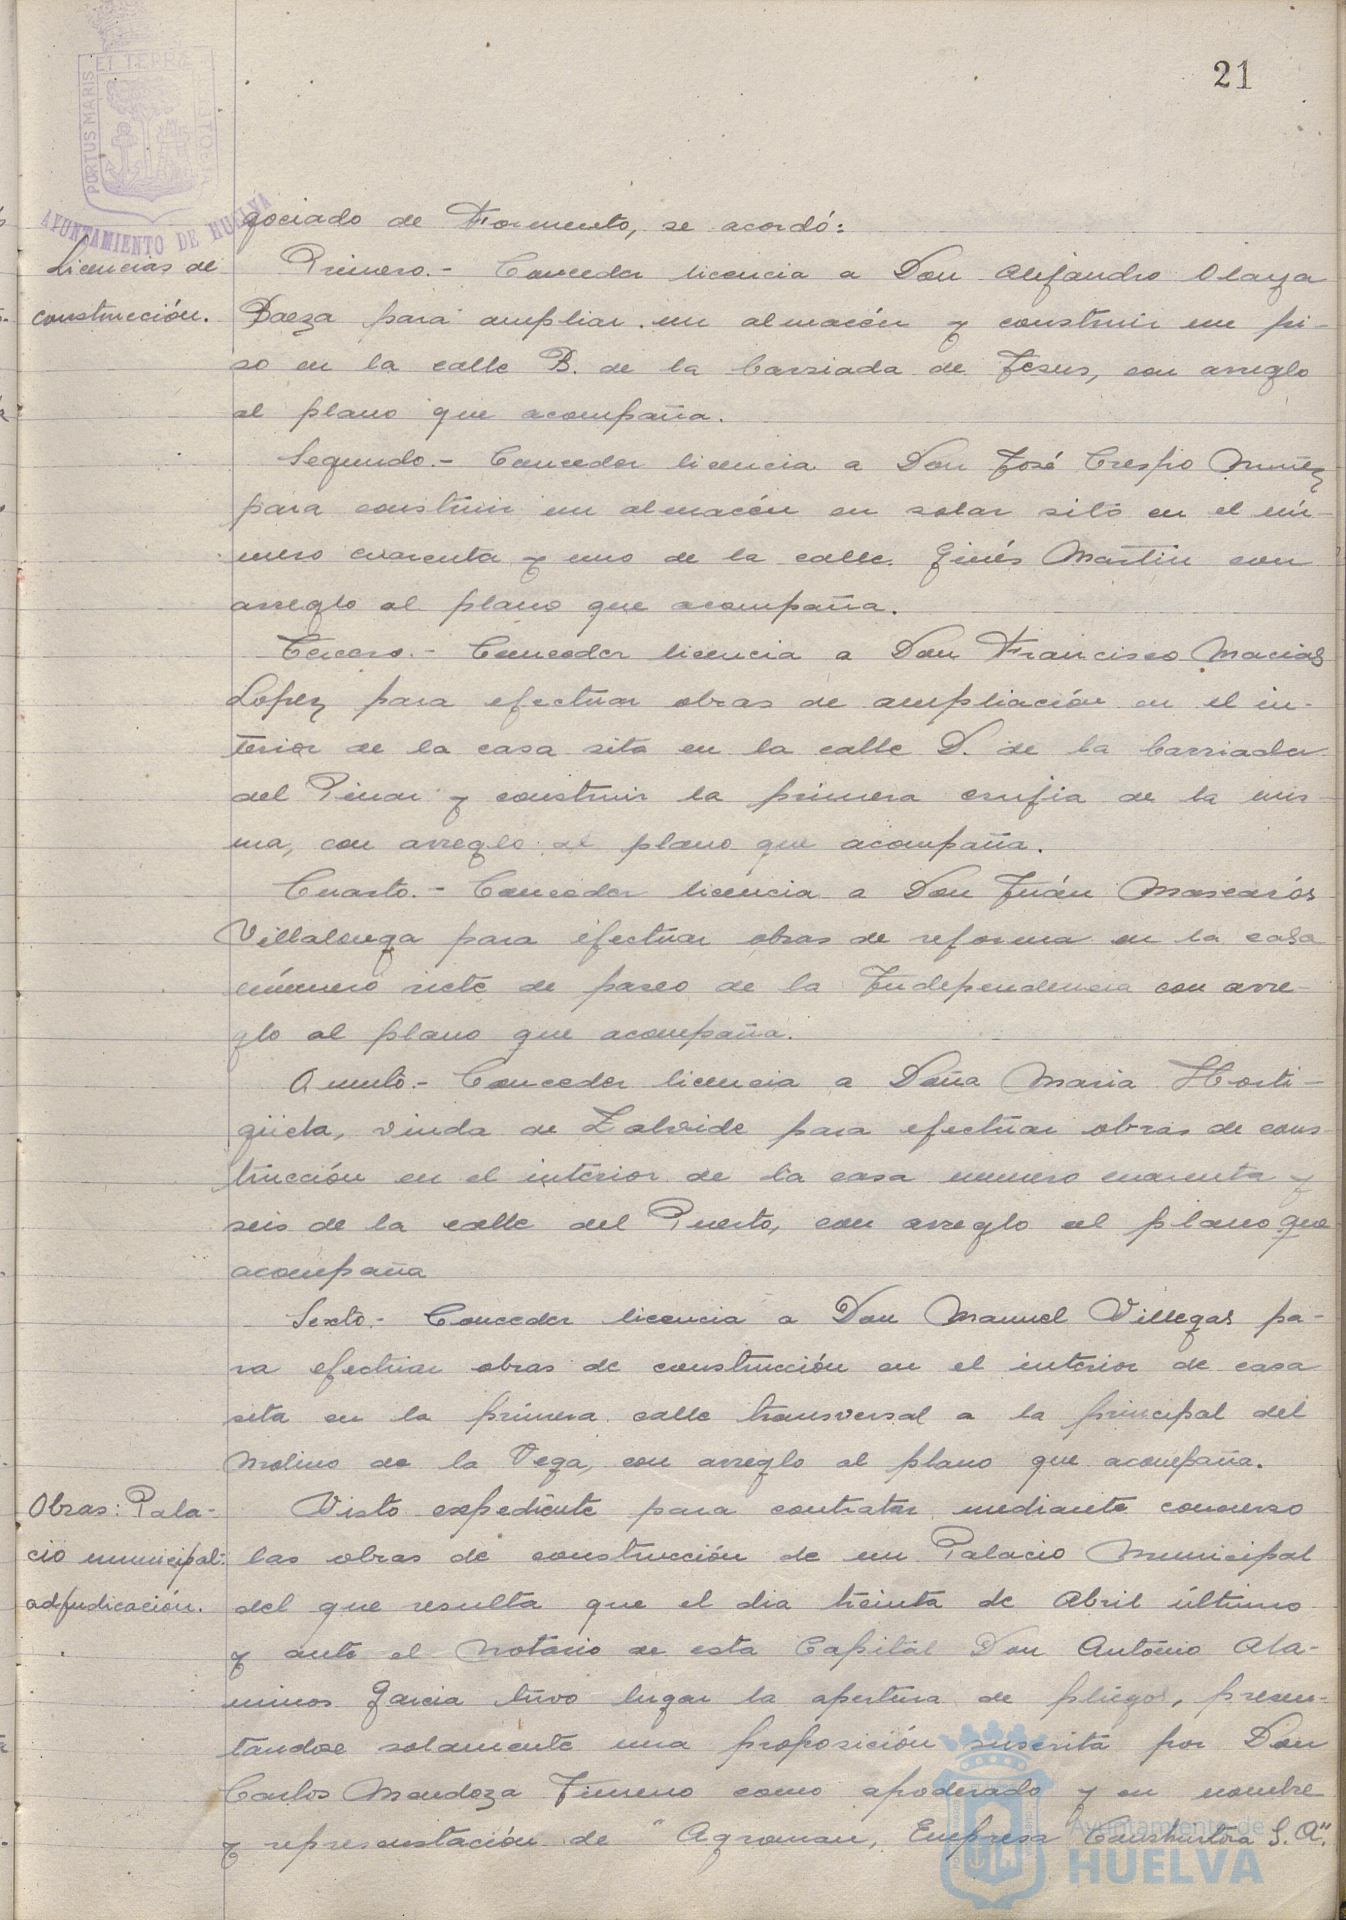 21
PORTUS MARIS ET TERRÆ CUSTODIA
AYUNTAMIENTO DE HUELVA
gociado de Fomento, se acordó:
Licencias de
construcción.
Primero.- Conceder licencia a Don Alejandro Olaya
Baeza para ampliar un almacén y construir un pi-
so en la calle B. de la barriada de Jesus, con arreglo
al plano que acompaña.
Segundo.- Conceder licencia a Don José Crespo Nuñez
para construir un almacén en solar sito en el nú-
mero cuarenta y uno de la calle Ginés Martin con
arreglo al plano que acompaña.
Tercero.- Conceder licencia a Don Francisco Macias
Lopez para efectuar obras de ampliación en el in-
terior de la casa sita en la calle D. de la barriada
del Pinar y construir la primera crujia de la mis-
ma, con arreglo al plano que acompaña.
Cuarto.- Conceder licencia a Don Juán Mascarós
Villalonga para efectuar obras de reforma en la casa
número siete de paseo de la Independencia con arre-
glo al plano que acompaña.
Quinto.- Conceder licencia a Doña Maria Horti-
güela, viuda de Zalvide para efectuar obras de cons-
trucción en el interior de la casa numero cuarenta y
seis de la calle del Puerto, con arreglo al plano que
acompaña
Sexto.- Conceder licencia a Don Manuel Villegas pa-
ra efectuar obras de construcción en el interior de casa
sita en la primera calle transversal a la principal del
Molino de la Vega, con arreglo al plano que acompaña.
Obras: Pala-
cio municipal:
adjudicación.
Visto expediente para contratar mediante concurso
las obras de construcción de un Palacio Municipal
del que resulta que el dia treinta de Abril último
y ante el Notario de esta Capital Don Antonio Ala-
minos Garcia tuvo lugar la apertura de pliegos, presen-
tandose solamente una proposición suscrita por Don
Carlos Mendoza Jimeno como apoderado y en nombre
y representación de "Agroman, Empresa Constructora S. A".
Ayuntamiento de
HUELVA